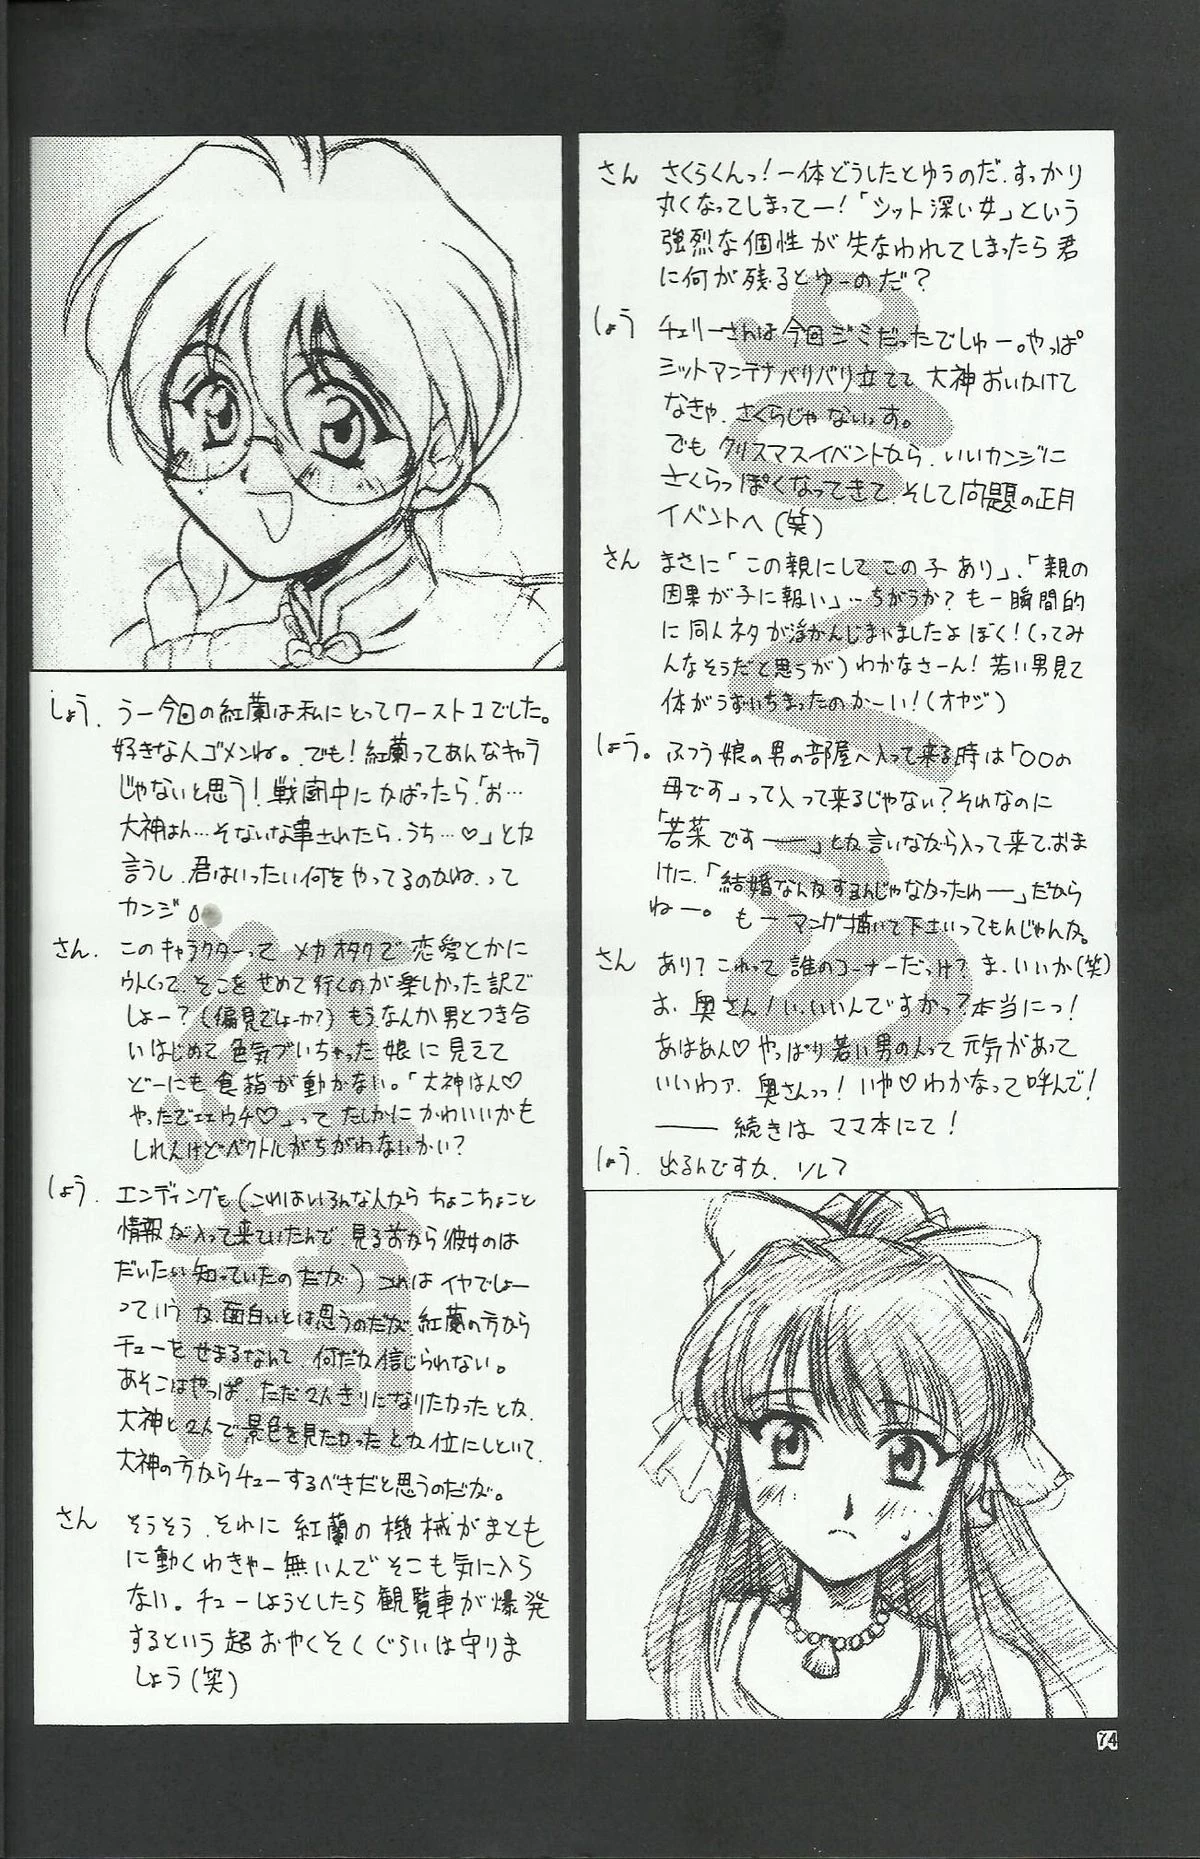 さん さくらくんっ！一体どうしたとゆうのだ、すっかり
丸くなってしまってー！「シット深い女」という
強烈な個性が失なわれてしまったら君
に何が残るとゆーのだ？
しょう チェリーさんは今回ジミだったでしゅー。やっぱ
シットアンテナバリバリ立てて大神おいかけて
なきゃ、さくらじゃないっす。
でもクリスマスイベントから、いいカンジに
さくらっぽくなってきて、そして問題の正月
イベントへ（笑）
さん まさに「この親にしてこの子あり」、「親の
因果が子に報い」…ちがうか？もー瞬間的
に同人ネタが浮かんじまいましたよぼく！（ってみ
んなそうだと思うが）わかなさーん！若い男見て
体がうずいちまったのかーい！（オヤジ）
しょう。ふつう娘の男の部屋へ入って来る時は「〇〇の
母です」って入って来るじゃない？それなのに
「若菜ですー」とか言いながら入って来て、おま
けに、「結婚なんかするんじゃなかったわー」だから
ねー。もーマンガ描いて下さいってもんじゃんか。
さん あり？これって誰のコーナーだっけ？ま、いいか（笑）
お、奥さん！い、いいんですかっ？本当にっ！
あはあん♡やっぱり若い男の人って元気があって
いいわァ、奥さんっっ！いや♡わかなって呼んで！
——続きはママ本にて！
しょう、出るんですか、ソレ？
しょう、うー今回の紅蘭は私にとってワースト1でした。
好きな人ゴメンね。でも！紅蘭ってあんなキャラ
じゃないと思う！戦闘中にかばったら「お…
大神はん…そないな事されたら、うち…♡」とか
言うし、君はいったい何をやってるのかね、って
カンジ
さん、このキャラクターってメカオタクで恋愛とかに
ウトくって、そこをせめて行くのが楽しかった訳で
しょー？（偏見でしょーか？）もう、なんか男とつき合
いはじめて色気づいちゃった娘に見えて
どーにも食指が動かない。「大神はん♡
やったでエエウチ♡」ってたしかにかわいいかも
しれんけどベクトルがちがわないかい？
しょう、エンディングも（これはいろんな人からちょこちょこと
情報が入って来ていたんで、見る前から彼女のは
だいたい知っていたのだが）これはイヤでしょー
っていうか、面白いとは思うのだが紅蘭の方から
チューをせまるなんて、何だか信じられない。
あそこはやっぱ、ただ2人きりになりたかったとか、
大神と2人で景色を見たかったとか位にしといて、
大神の方からチューするべきだと思うのだが。
さん そうそう、それに紅蘭の機械がまとも
に動くわきゃー無いんでそこも気に入ら
ない。チューしようとしたら観覧車が爆発
するという超おやくそくぐらいは守りま
しょう（笑）
74